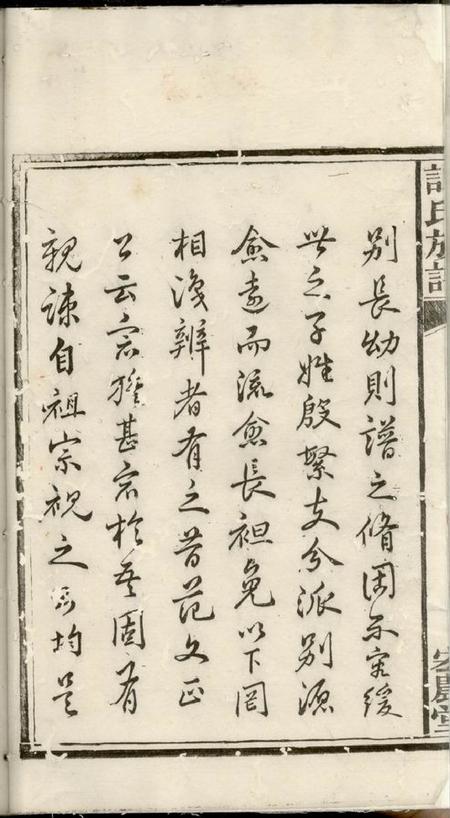 氏族譜
宏農堂
别長幼則譜之脩固不容緩
世之子姓殷繁支分派别源
愈遠而流愈長袒免以下罔
相辨者有之昔范文正
公云宗族甚衆於吾固有
親疎自祖宗視之則均是